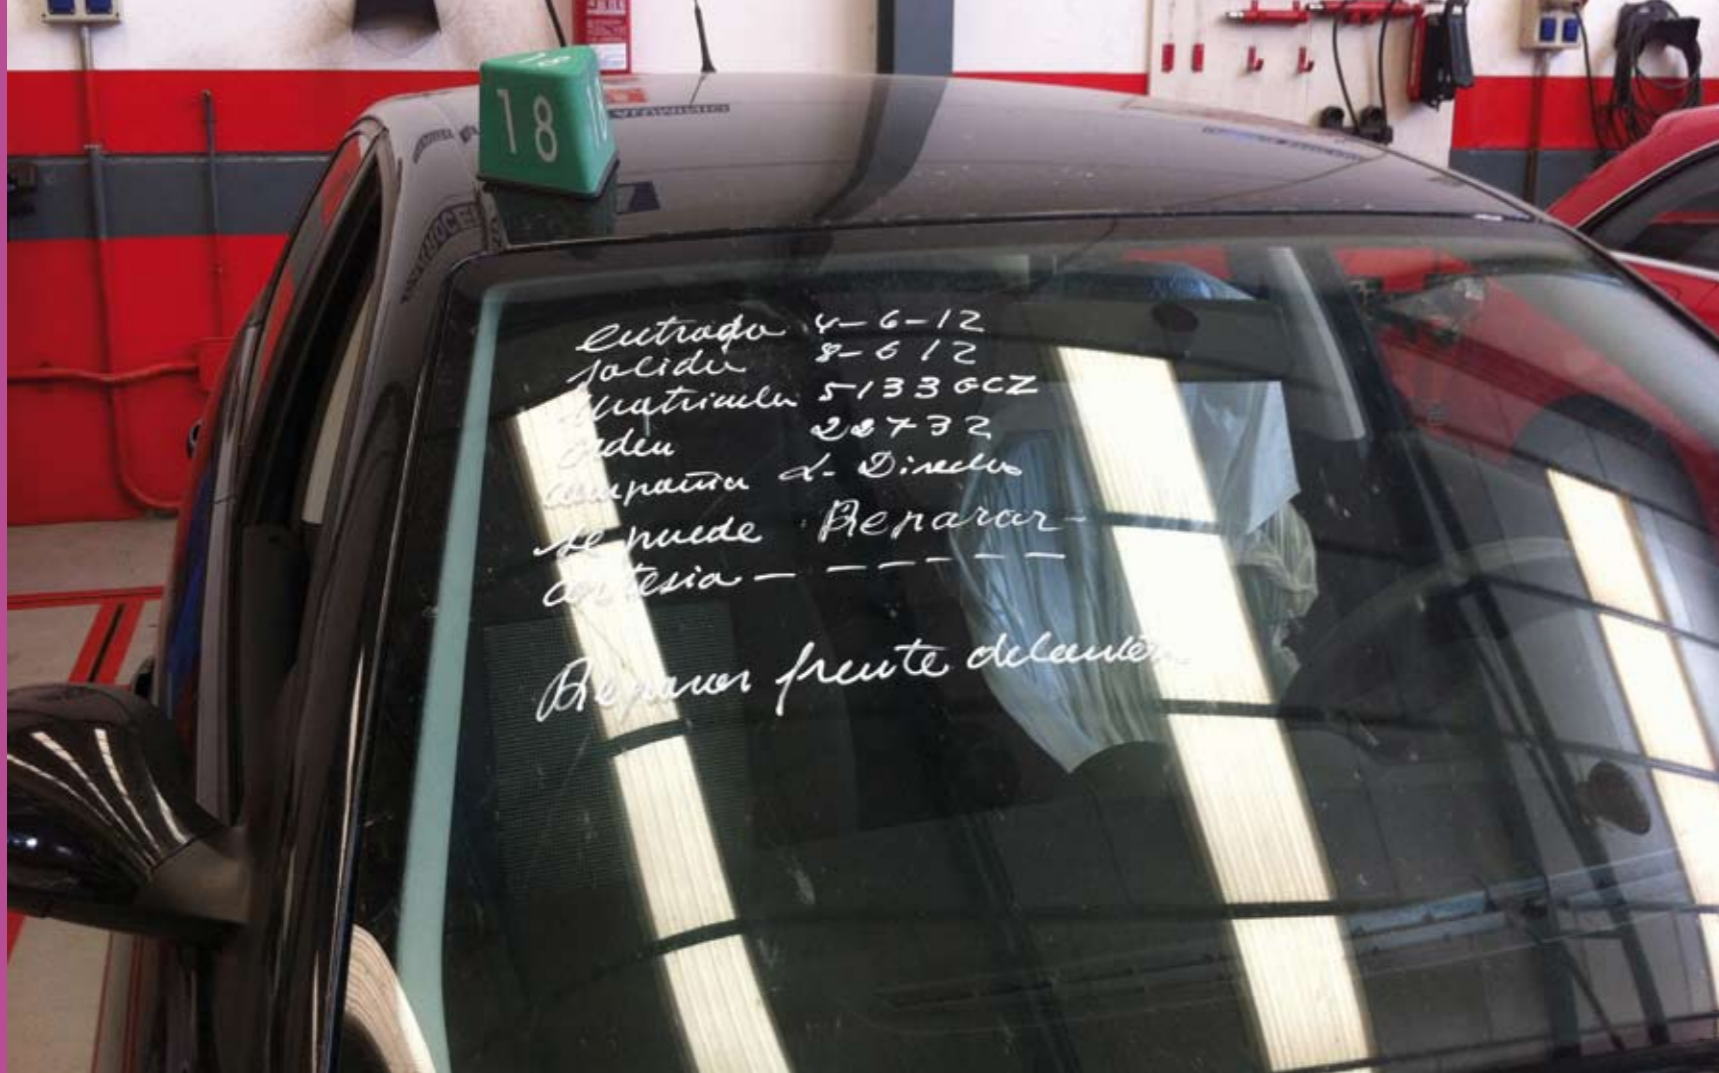 18
entrada 4-6-12
salida 8-6 12
matricula 5133 GCZ
orden 22732
compañia L. Directa
se puede Reparar-
cortesia - - - - - - -
Reparar frente delantero